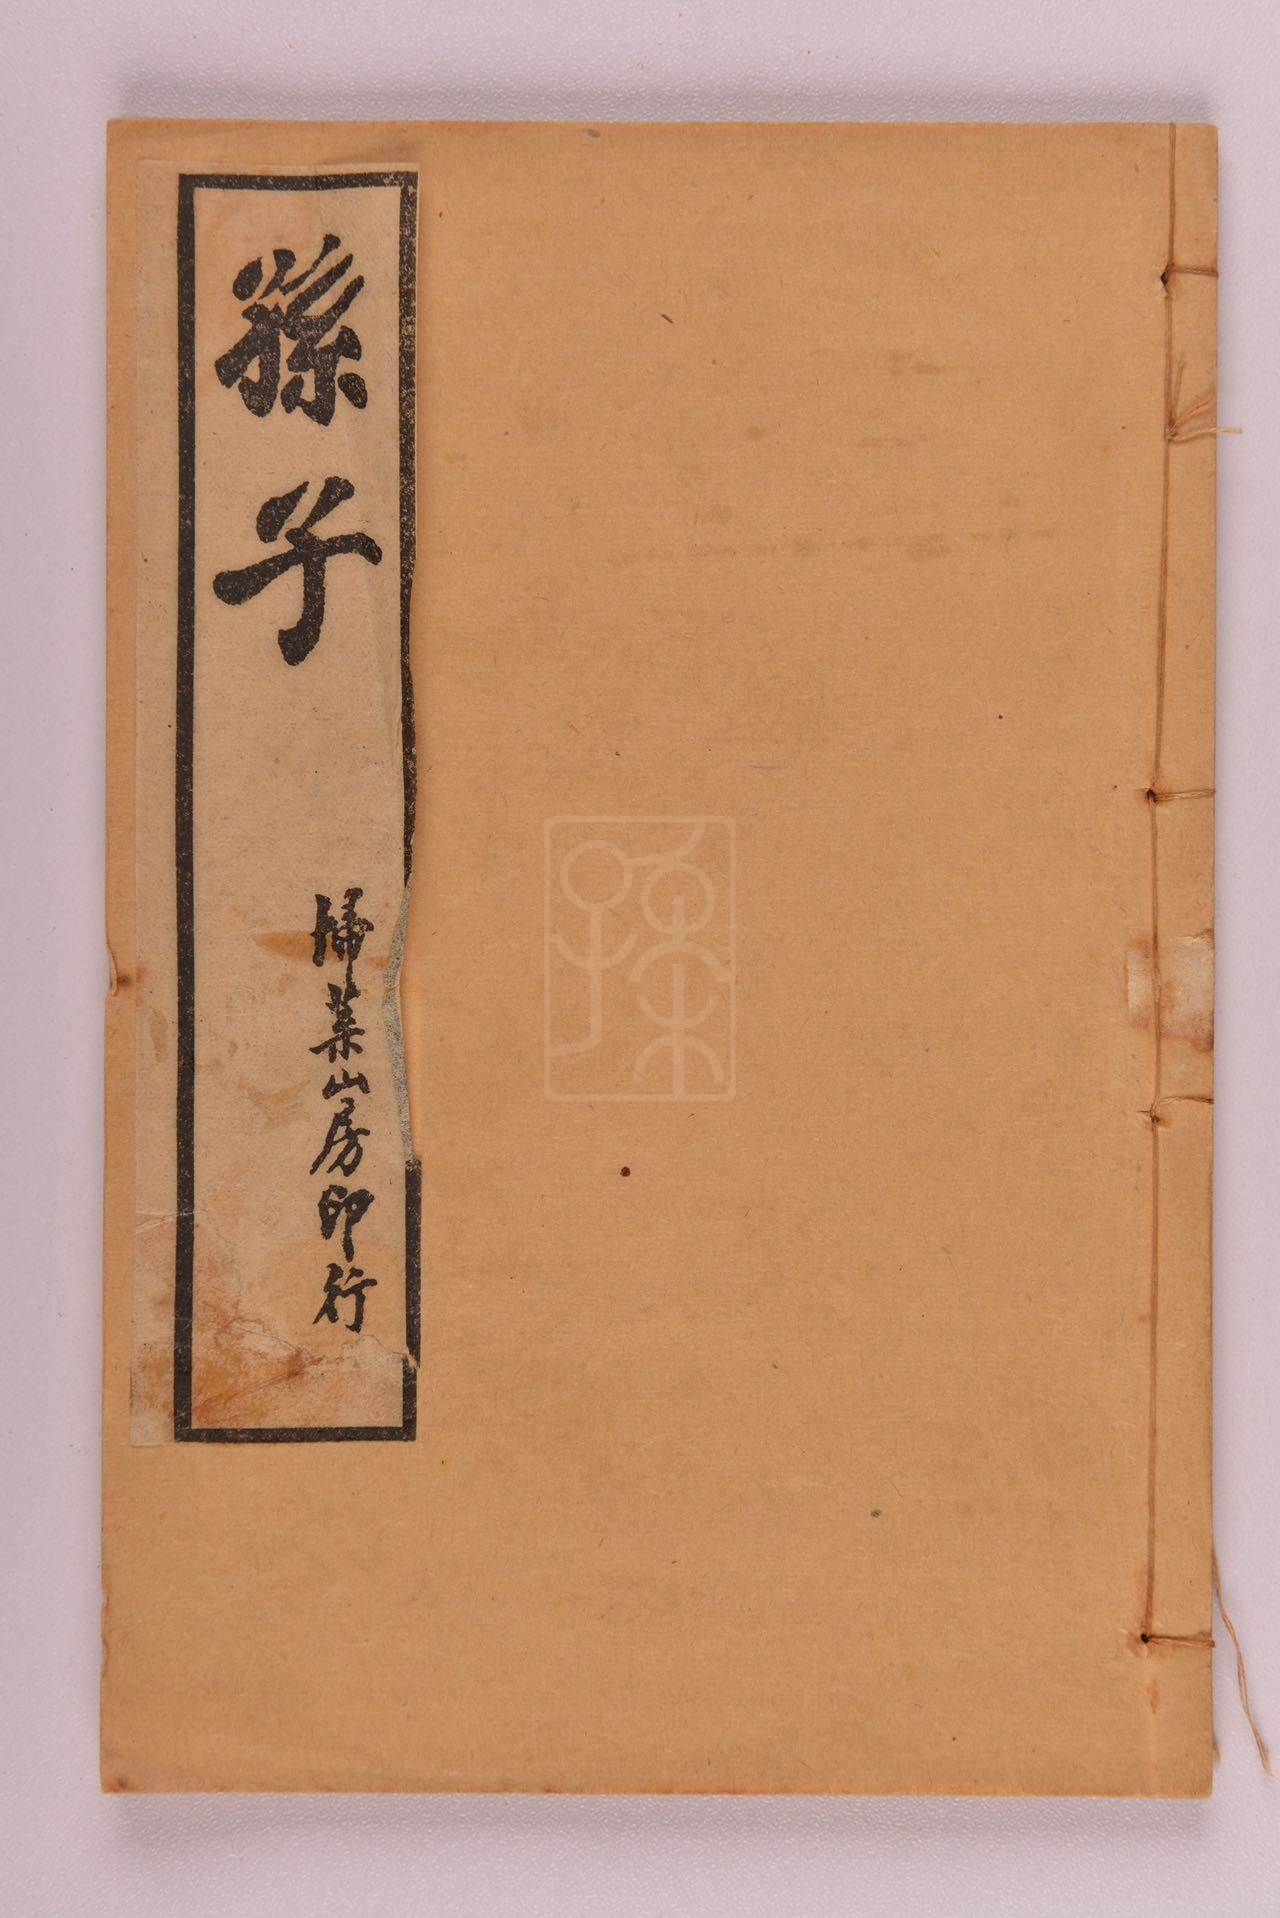 孫子
掃葉山房印行